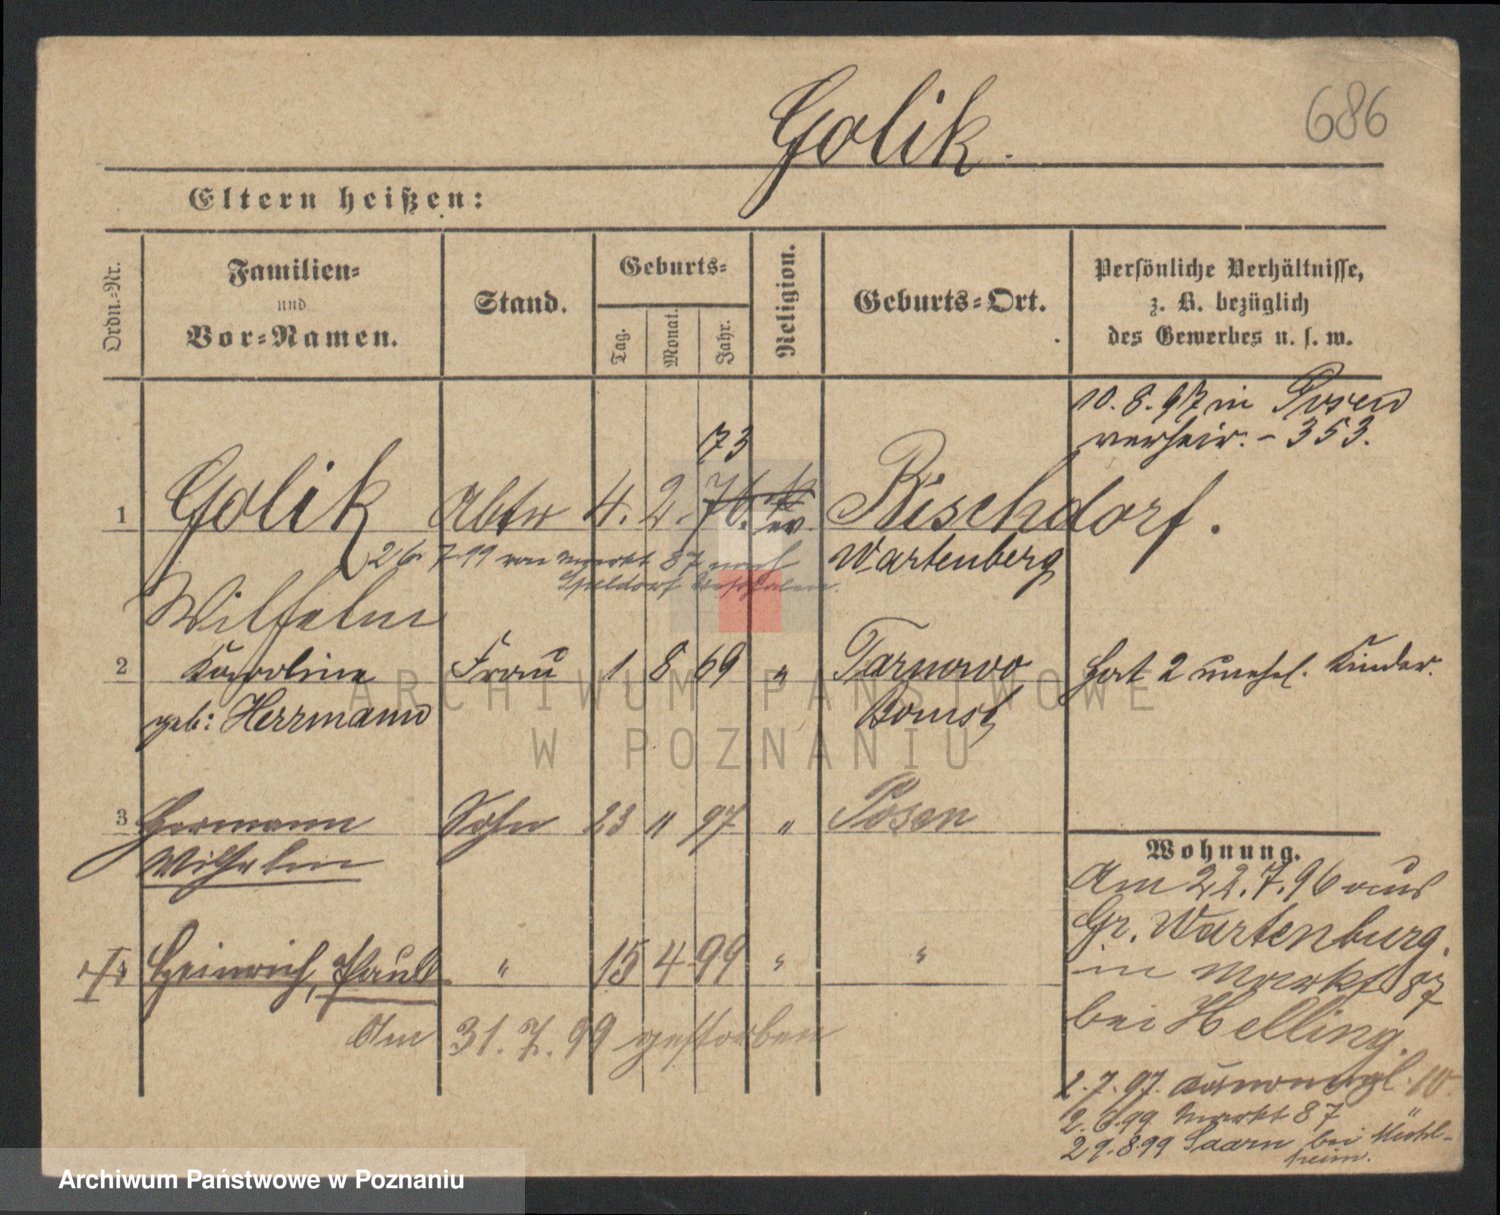 Golik.
686
Eltern heißen:
Ordn.-Nr.
Familien-
und
Vor-Namen.
Stand.
Geburts-
Tag.
Monat.
Jahr.
Religion.
Geburts-Ort.
Persönliche Verhältnisse,
z. B. bezüglich
des Gewerbes u. s. w.
10.8.97 in Posen
verheir. - 353.
73
1 Golik Abtr 4. 2. 76. k Bischdorf.
ev.
26.7.99 von Markt 87 nach Wartenberg
Westfalen.
Wilhelm
2 Karoline Frau 1 8 69 " Tarnowo Hat 2 unehel. Kinder.
geb: Herrmann Bomst
3 Hermann Sohn 23 11 97 " Posen
Wilhelm
4 Heinrich, Paul " 15 4 99 " "
Am 31.7.99 gestorben
Wohnung.
Am 22.7.96 aus
Gr. Wartenburg.
in Markt 87
bei Helling.
2.7.97. 10.
2.6.99 Markt 87
29.8.99 Saarn bei Mühl-
heim.
ARCHIWUM PAŃSTWOWE
W POZNANIU
Archiwum Państwowe w Poznaniu